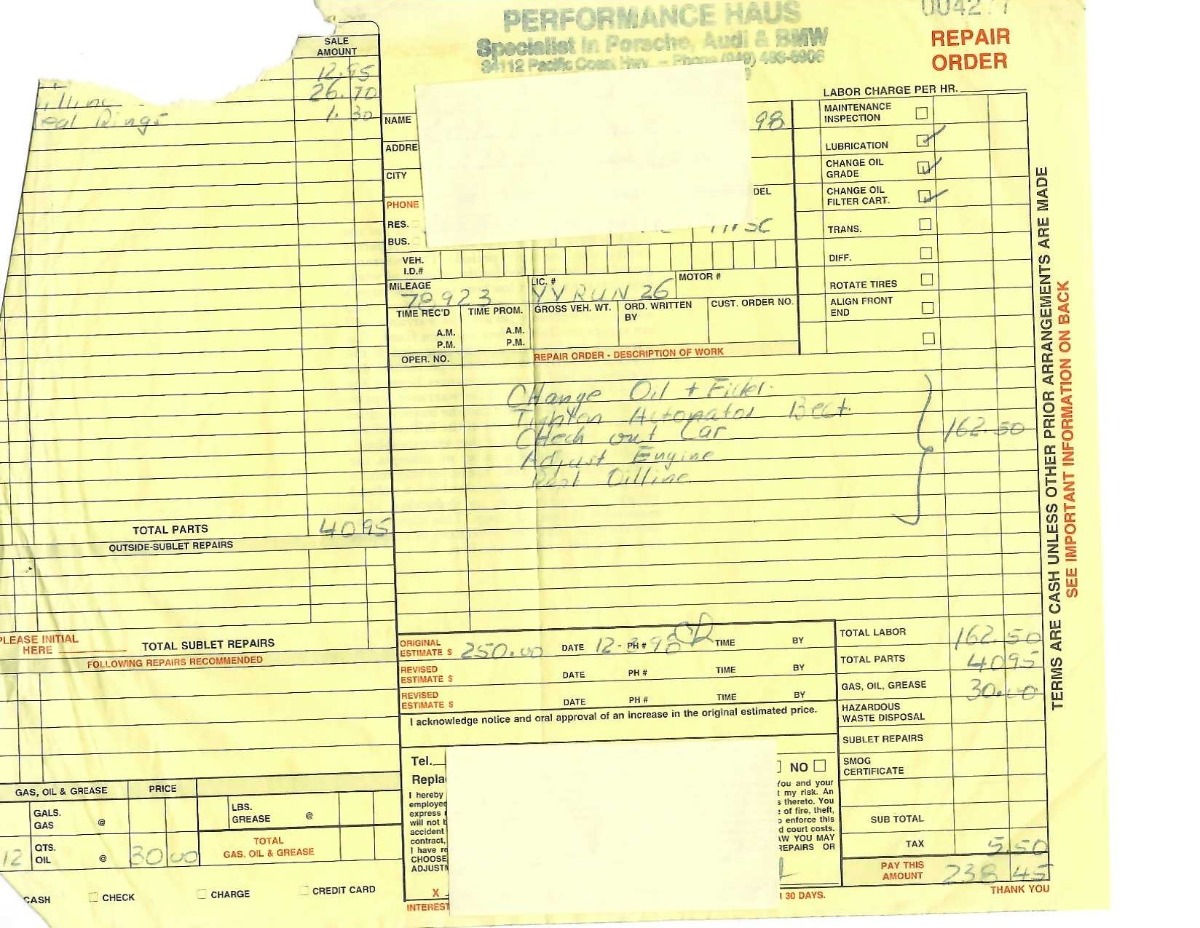 PERFORMANCE HAUS
Specialist in Porsche, Audi & BMW
34112 Pacific Coast Hwy. – Phone (949) 496-
REPAIR
ORDER
SALE
AMOUNT
12.95
26.70
eal Rings 1.30
TOTAL PARTS 40 95
OUTSIDE-SUBLET REPAIRS
PLEASE INITIAL
HERE
TOTAL SUBLET REPAIRS
FOLLOWING REPAIRS RECOMMENDED
GAS, OIL & GREASE PRICE
GALS.
GAS @
LBS.
GREASE @
12 QTS.
OIL @ 30 00
TOTAL
GAS, OIL & GREASE
CASH CHECK CHARGE CREDIT CARD
NAME 98
ADDRE
CITY
DEL
PHONE
RES.
BUS.
VEH.
I.D.#
MILEAGE LIC. # MOTOR #
78,923 YVRUN 26
TIME REC'D TIME PROM. GROSS VEH. WT. ORD. WRITTEN BY CUST. ORDER NO.
A.M. A.M.
P.M. P.M.
OPER. NO. REPAIR ORDER - DESCRIPTION OF WORK
LABOR CHARGE PER HR.
MAINTENANCE
INSPECTION
LUBRICATION
CHANGE OIL
GRADE
CHANGE OIL
FILTER CART.
TRANS.
DIFF.
ROTATE TIRES
ALIGN FRONT
END
Change Oil + Filter
Check out Car
162.50
Adjust Engine
Oilline
ORIGINAL
ESTIMATE $ 250.00 DATE 12-3-98 PH # TIME BY
REVISED
ESTIMATE $ DATE PH # TIME BY
REVISED
ESTIMATE $ DATE PH # TIME BY
I acknowledge notice and oral approval of an increase in the original estimated price.
Tel.
NO
Repla
I hereby
employee
express
will not b
accident
contract,
I have r
CHOOSE
ADJUSTM
You and your
t my risk. An
s thereto. You
e of fire, theft,
o enforce this
d court costs.
AW YOU MAY
REPAIRS OR
X
INTEREST
30 DAYS.
TOTAL LABOR 162.50
TOTAL PARTS 40 95
GAS, OIL, GREASE 30.00
HAZARDOUS
WASTE DISPOSAL
SUBLET REPAIRS
SMOG
CERTIFICATE
SUB TOTAL
TAX 5.50
PAY THIS
AMOUNT 238 45
THANK YOU
TERMS ARE CASH UNLESS OTHER PRIOR ARRANGEMENTS ARE MADE
SEE IMPORTANT INFORMATION ON BACK